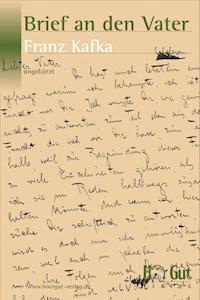 Brief an den Vater
Franz Kafka
Schelesen
Liebster Vater
ungekürzt
Du hast mich letzthin einmal
gefragt, warum ich behaupte, ich hätte
vor Dir. Ich wusste Dir, wie gewöhn
nichts zu antworten, zum Teil eben aus
die ich vor Dir habe, zum
halb weil zur Begründung dieser
zu viele Einzelheiten gehören, als dass
ich sie im Reden halbwegs zusammen
halten könnte. Und wenn ich hier
suche Dir schriftlich zu antworten, so
wird es doch nur sehr
sein, weil auch im Schreiben die
ihre Folgen
www.hoergut-verlag.de
Hör Gut